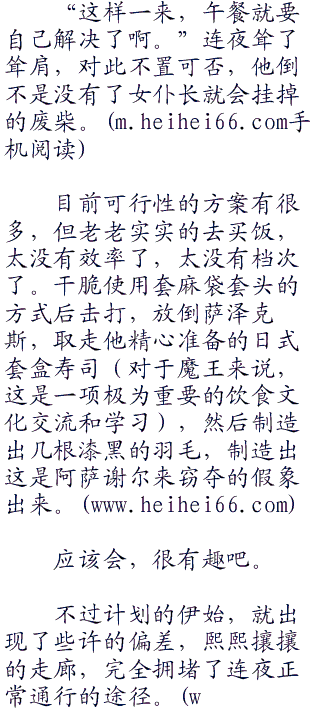 “这样一来，午餐就要
自己解决了啊。”连夜耸了
耸肩，对此不置可否，他倒
不是没有了女仆长就会挂掉
的废柴。(m.heihei66.com手
机阅读)
目前可行性的方案有很
多，但老老实实的去买饭，
太没有效率了，太没有档次
了。干脆使用套麻袋套头的
方式后击打，放倒萨泽克
斯，取走他精心准备的日式
套盒寿司（对于魔王来说，
这是一项极为重要的饮食文
化交流和学习），然后制造
出几根漆黑的羽毛，制造出
这是阿萨谢尔来窃夺的假象
出来。(www.heihei66.com)
应该会，很有趣吧。
不过计划的伊始，就出
现了些许的偏差，熙熙攘攘
的走廊，完全拥堵了连夜正
常通行的途径。(w